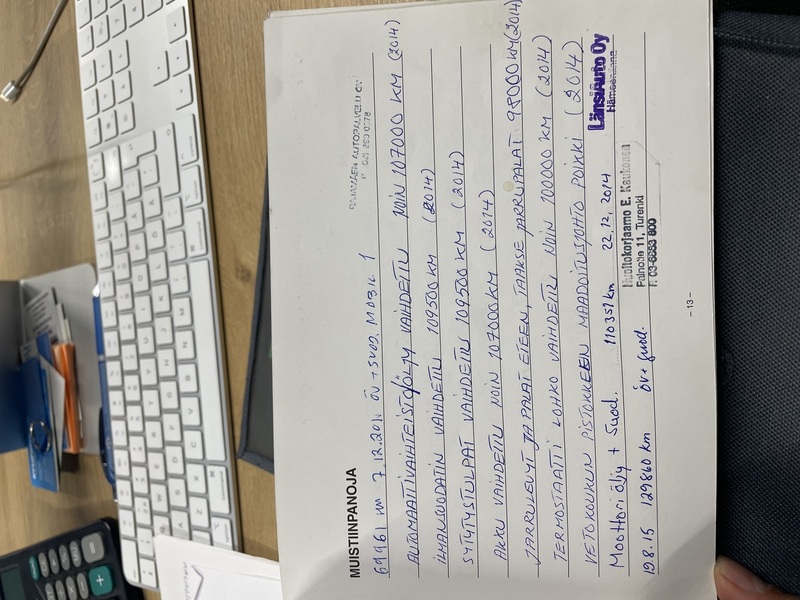 MUISTIINPANOJA
RAJAMÄEN AUTOPALVELU OY
69961 km 7.12.2011 ÖV + SUOD. MOBIL 1
AUTOMAATTIVAIHTEISTOÖLJY VAIHDETTU NOIN 107000 KM (2014)
ILMANSUODATIN VAIHDETTU 109500 KM (2014)
SYTYTYSTULPAT VAIHDETTU 109500 KM (2014)
AKKU VAIHDETTU NOIN 107000 KM (2014)
JARRULEVYT JA PALAT ETEEN, TAAKSE JARRUPALAT 98000 KM (2014)
TERMOSTAATTI LOHKO VAIHDETTU NOIN 100000 KM (2014)
VETOKOUKUN PISTOKKEEN MAADOITUSJOHTO POIKKI (2014)
Moottoriöljy + Suod. 110351 km 22.12.2014 LänsiAuto Oy
Hämeenlinna
Huoltokorjaamo E. Kaukonen
Palnotie 11, Turenki
19.8.15 129860 km öv + suod. t. 03-6883 600
– 13 –